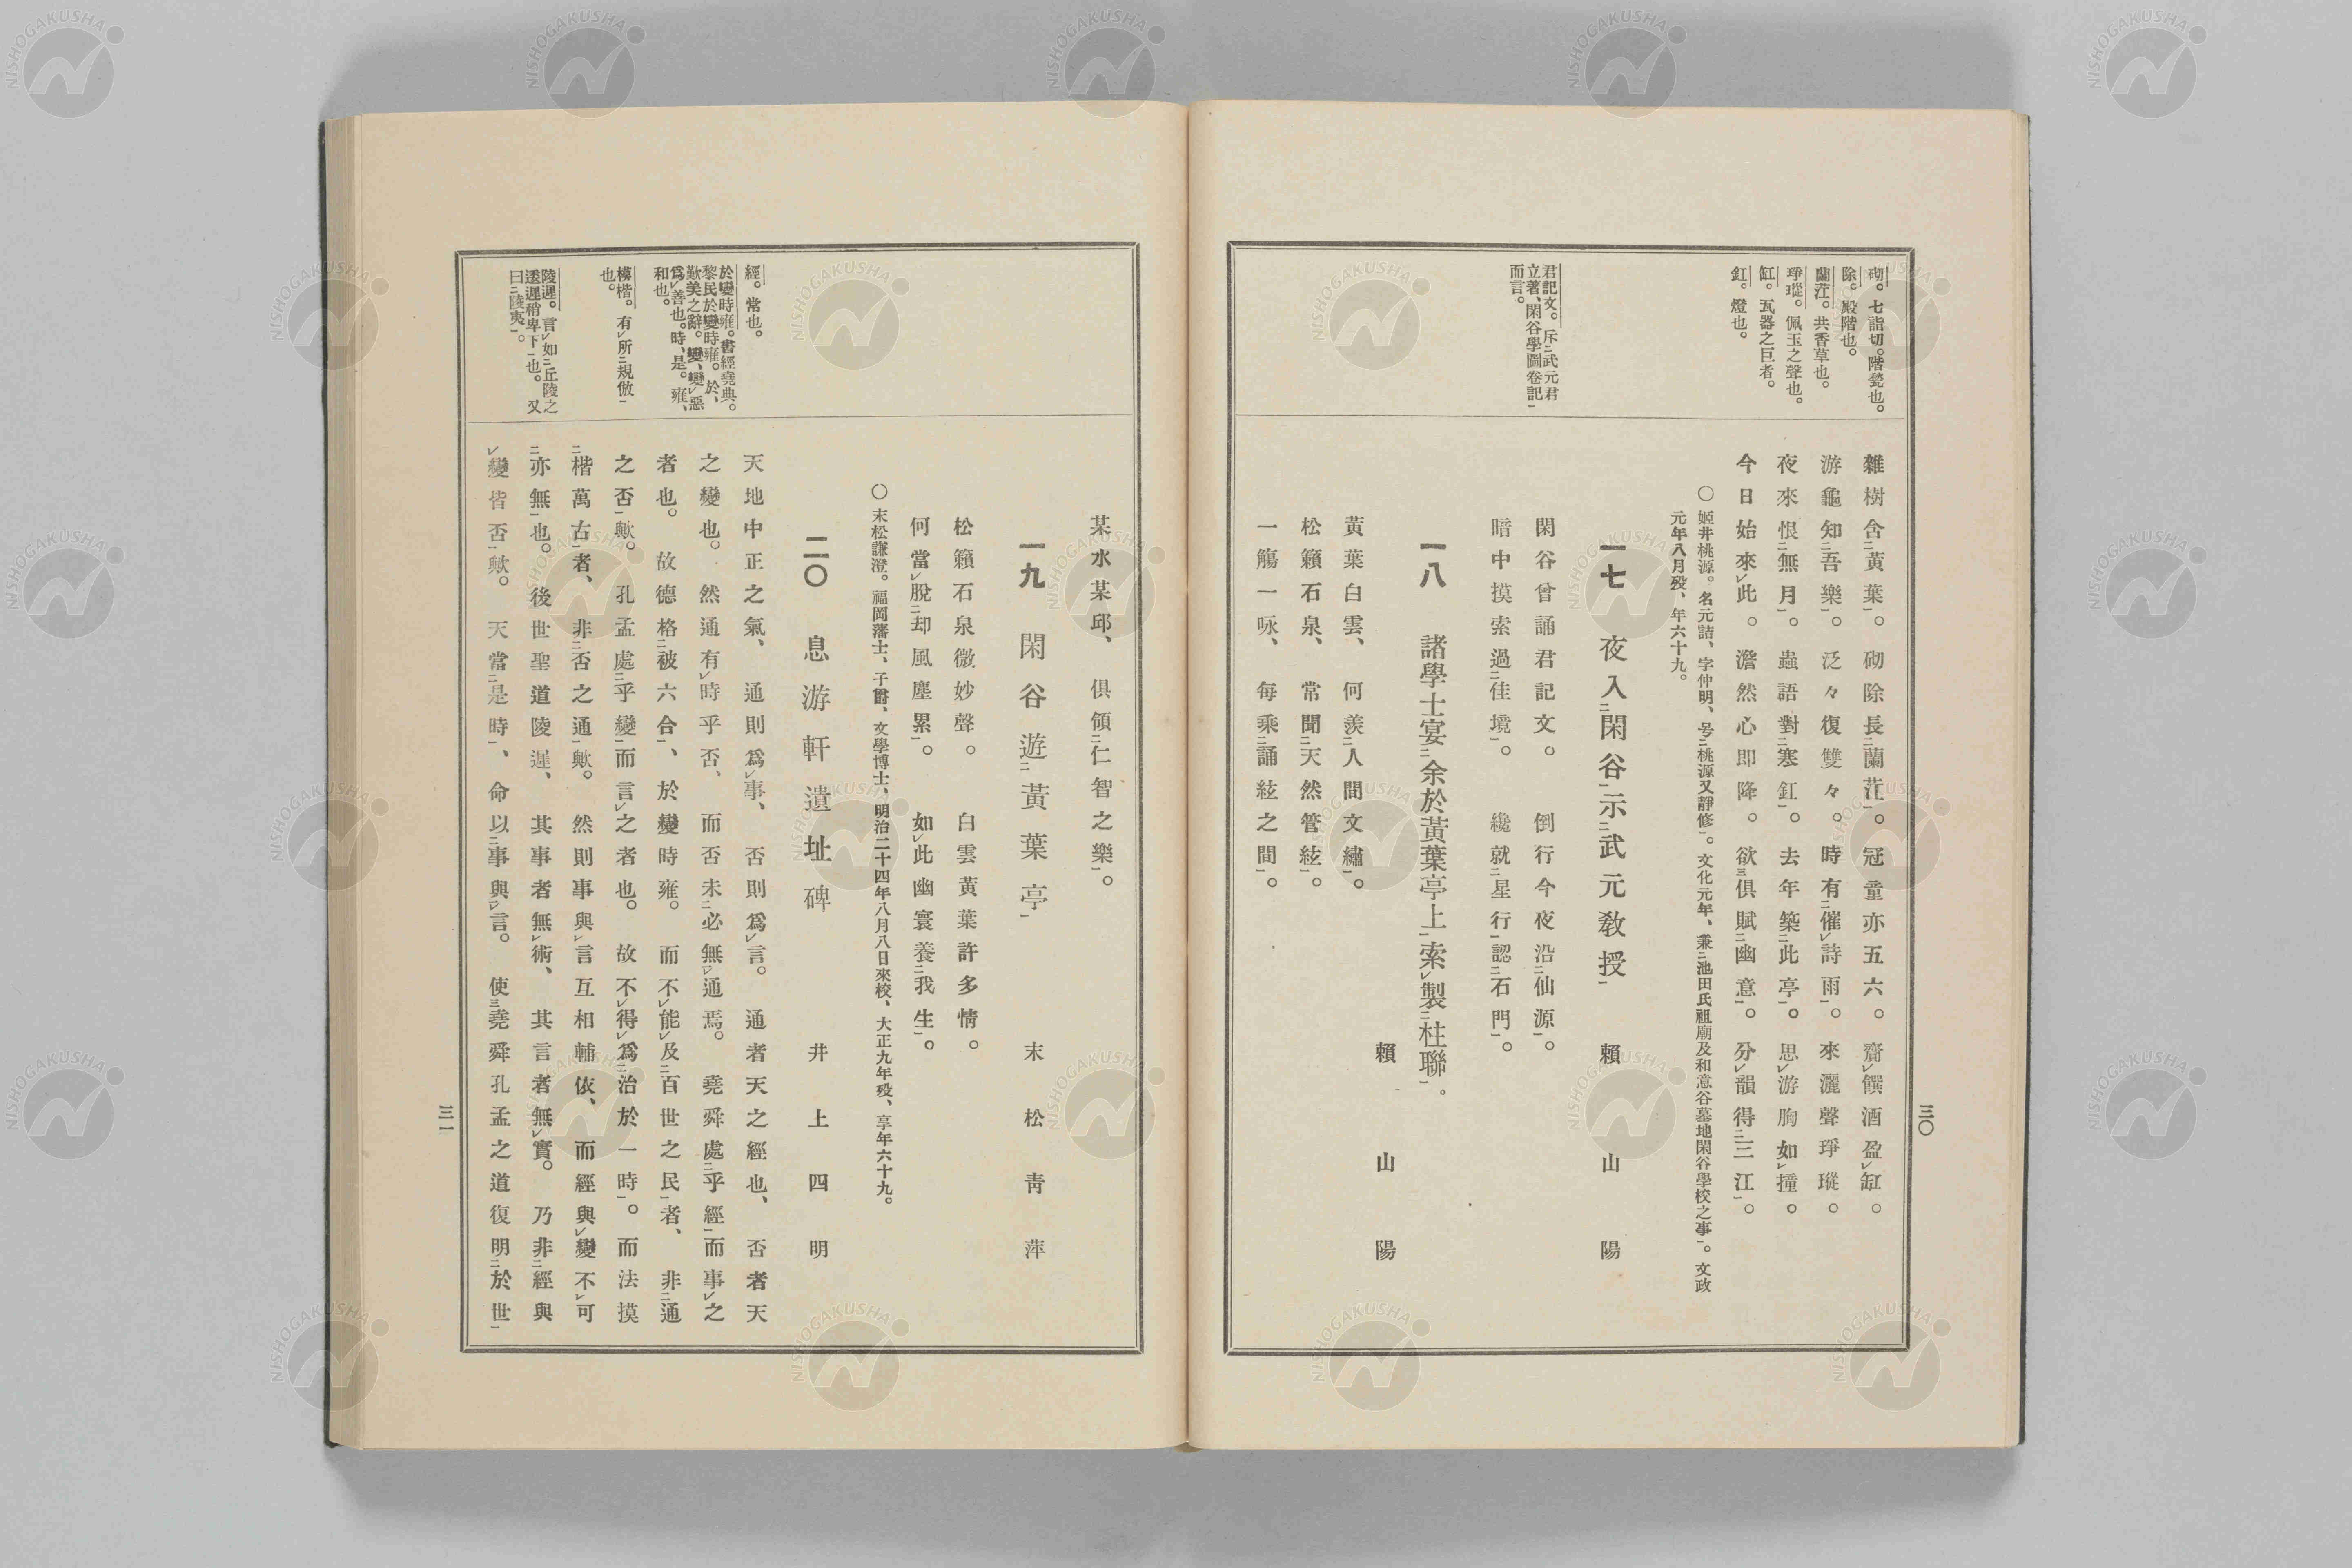 三〇
砌。七詣切。階甃也。
除。殿階也。
蘭茳。共香草也。
琤瑽。佩玉之聲也。
缸。瓦器之巨者。
釭。燈也。
君記文。斥二武元君
立著、閑谷學圖卷記一
而言。
雜樹含二黃葉一。砌除長二蘭茳一。冠童亦五六。齎レ饌酒盈レ缸。
游龜知二吾樂一。泛々復雙々。時有二催レ詩雨一。來灑聲琤瑽。
夜來恨二無月一。蟲語對二寒釭一。去年築二此亭一。思レ游胸如レ撞。
今日始來レ此。澹然心即降。欲三俱賦二幽意一。分レ韻得二三江一。
〇姬井桃源。名元喆、字仲明、号二桃源又靜修一。文化元年、兼二池田氏祖廟及和意谷墓地閑谷學校之事一。文政
元年八月歿、年六十九。
一七 夜入二閑谷一示二武元敎授一 賴山陽
閑谷曾誦君記文。倒行今夜沿二仙源一。
暗中摸索過二佳境一。纔就二星行一認二石門一。
一八 諸學士宴二余於黃葉亭上一索レ製二柱聯一。
賴山陽
黃葉白雲、何羨二人間文繡一。
松籟石泉、常聞二天然管絃一。
一觴一咏、每乘二誦絃之間一。
某水某邱、俱領二仁智之樂一。
一九 閑谷遊二黃葉亭一 末松靑萍
松籟石泉微妙聲。白雲黃葉許多情。
何當レ脫二却風塵累一。如レ此幽寰養二我生一。
〇末松謙澄。福岡藩士、子爵、文學博士、明治二十四年八月八日來校、大正九年歿、享年六十九。
二〇 息游軒遺址碑 井上四明
經。常也。
於變時雍。書經堯典。
黎民於變時雍。於、
歎美之辭。變、變レ惡
爲レ善也。時、是。雍、
和也。
模楷。有レ所二規倣一
也。
陵遲。言レ如二丘陵之
逶遲稍卑下一也。又
曰二陵夷一。
天地中正之氣、通則爲レ事、否則爲レ言。通者天之經也、否者天
之變也。然通有レ時乎否、而否未二必無レ通焉。堯舜處二乎經一而事レ之
者也。故德格二被六合一、於變時雍。而不レ能レ及二百世之民一者、非二通
之否一歟。孔孟處二乎變一而言レ之者也。故不レ得レ爲二治於一時一。而法摸
二楷萬古一者、非二否之通一歟。然則事與レ言互相輔依、而經與レ變不レ可
二亦無一也。後世聖道陵遲、其事者無レ術、其言者無レ實。乃非二經與
レ變皆否一歟。天常二是時一、命以二事與一レ言。使三堯舜孔孟之道復明二於世一
三一